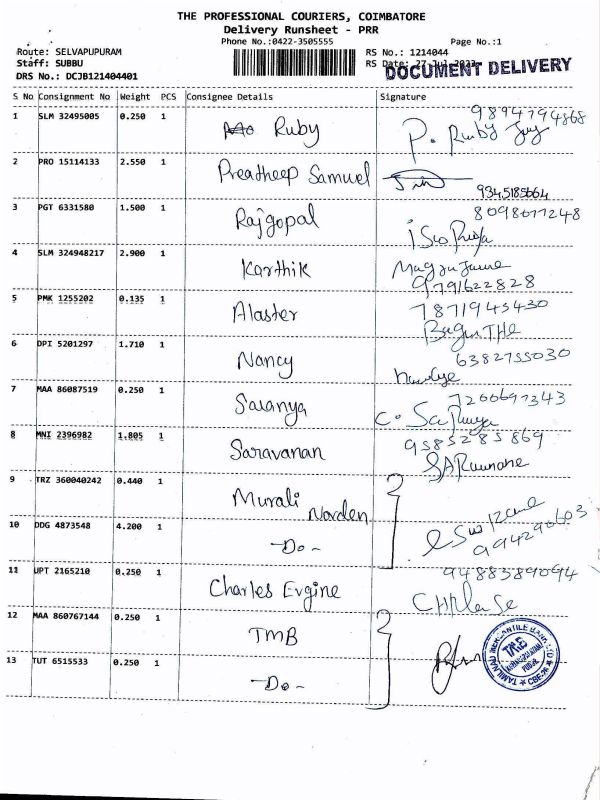 THE PROFESSIONAL COURIERS, COIMBATORE
Delivery Runsheet - PRR
Phone No.:0422-3505555 Page No.:1
Route: SELVAPUPURAM RS No.: 1214044
Staff: SUBBU RS Date: 27-Jul-2023
DRS No.: DCJB121404401 DOCUMENT DELIVERY
S No Consignment No Weight PCS Consignee Details Signature
1 SLM 32495005 0.250 1 Ruby 9894794868
P. Ruby
2 PRO 15114133 2.550 1 Preatheep Samuel
9345185664
3 PGT 6331580 1.500 1 Rajgopal 8098077248
4 SLM 324948217 2.900 1 Karthik
9791622828
5 PMK 1255202 0.135 1 Alaster 7871945430
6 DPI 5201297 1.710 1 Nancy 6382755030
7 MAA 86087519 0.250 1 Saranya 7200697343
C.
8 MNI 2396982 1.805 1 Saravanan 9585285869
9 TRZ 360040242 0.440 1 Murali Norden
10 DDG 4873548 4.200 1 -Do- 994290603
11 UPT 2165210 0.250 1 Charles Evgine 9488389094
12 MAA 860767144 0.250 1 TMB
13 TUT 6515533 0.250 1 -Do-
TAMILNAD MERCANTILE BANK LTD